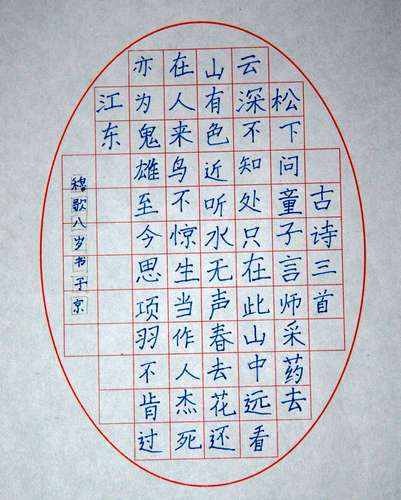 古诗三首
松下问童子言师采药去
云深不知处只在此山中远看
山有色近听水无声春去花还
在人来鸟不惊生当作人杰死
亦为鬼雄至今思项羽不肯过
江东
穆歌八岁书于京